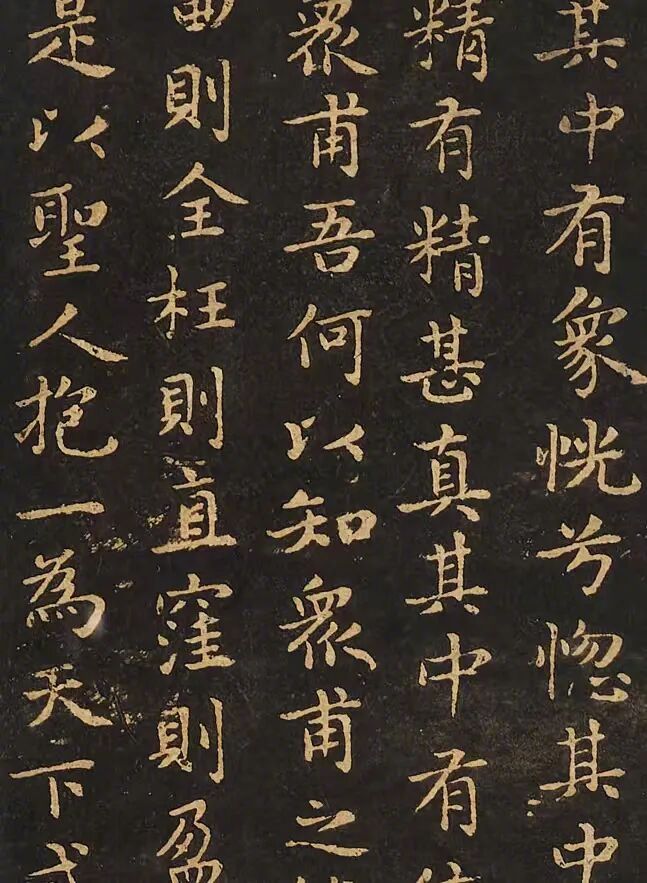 其中有象恍兮惚其中
精有精甚真其中有信
衆甫吾何以知衆甫之
曲則全枉則直窪則盈
是以聖人抱一為天下式